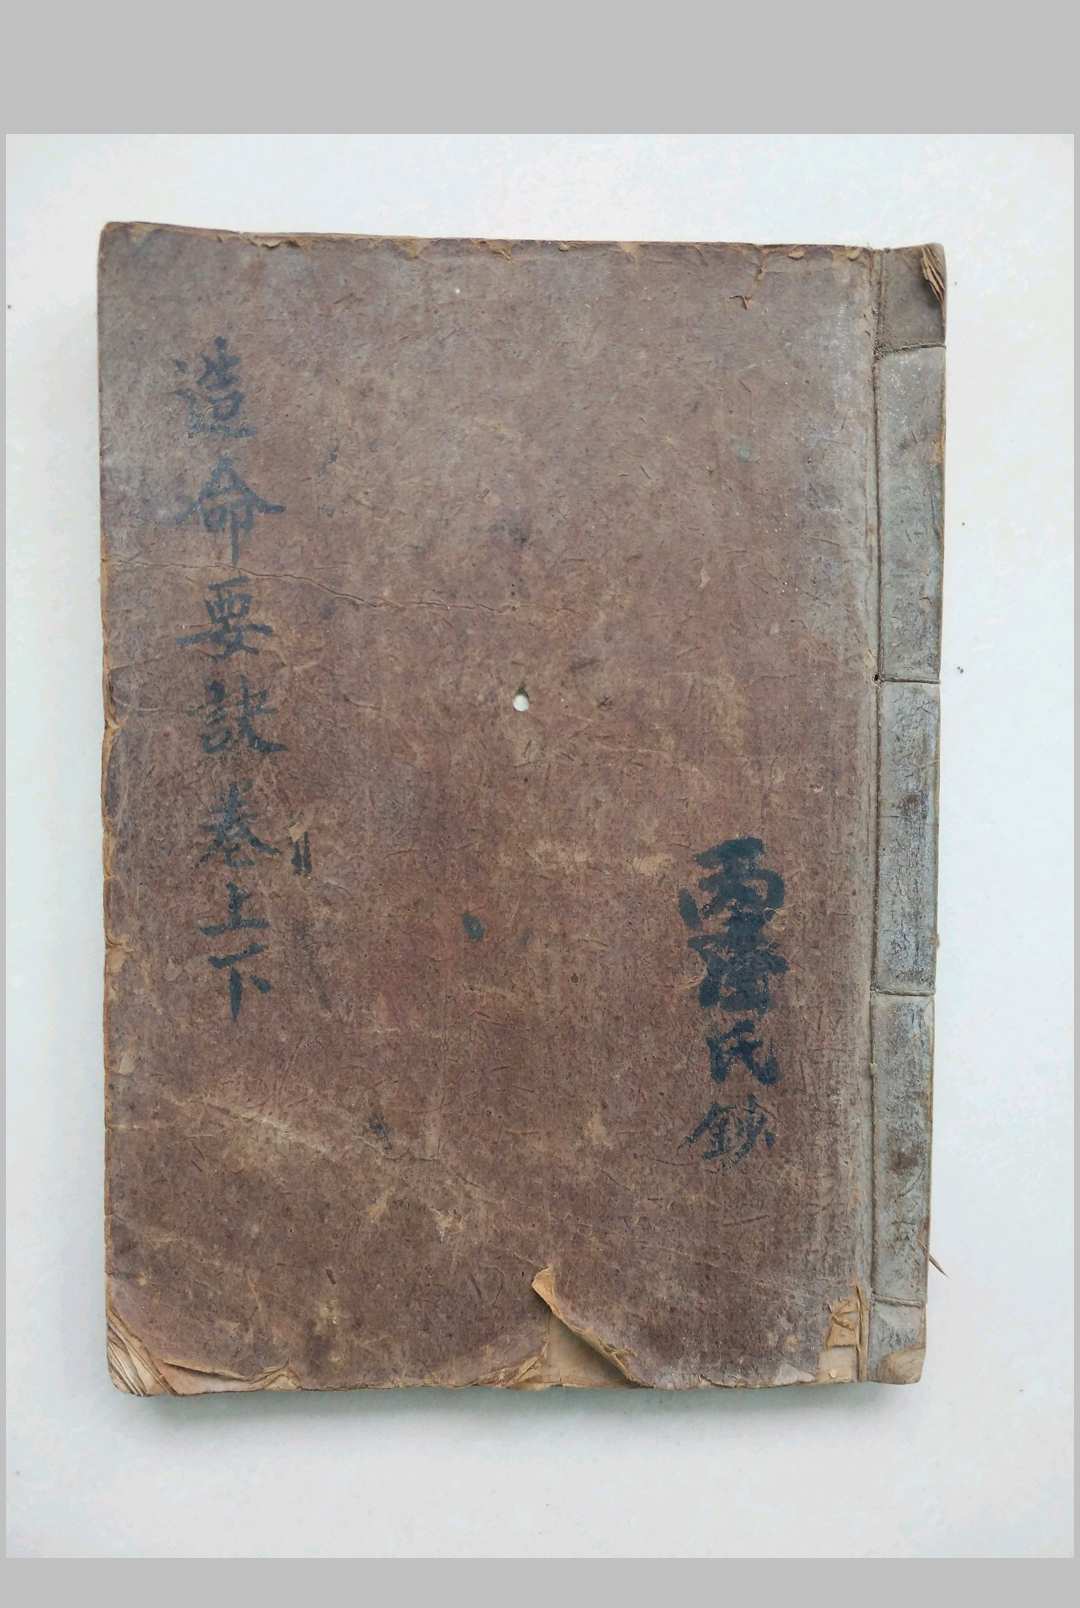 氏鈔
造命要訣卷上下